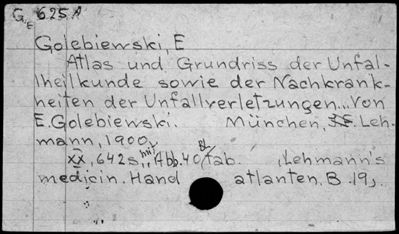 G. E 625 A
Golebiewski, E
Atlas und Grundriss der Unfal-
lheilkunde sowie der Nachkrank-
heiten der Unfallverletzungen... von
E. Golebiewski. München, J.F. Leh-
mann, 1900.
XX, 642 s., mit Abb. 40 Bl. tab. (Lehmann's
medicin. Hand atlanten, B. 19).